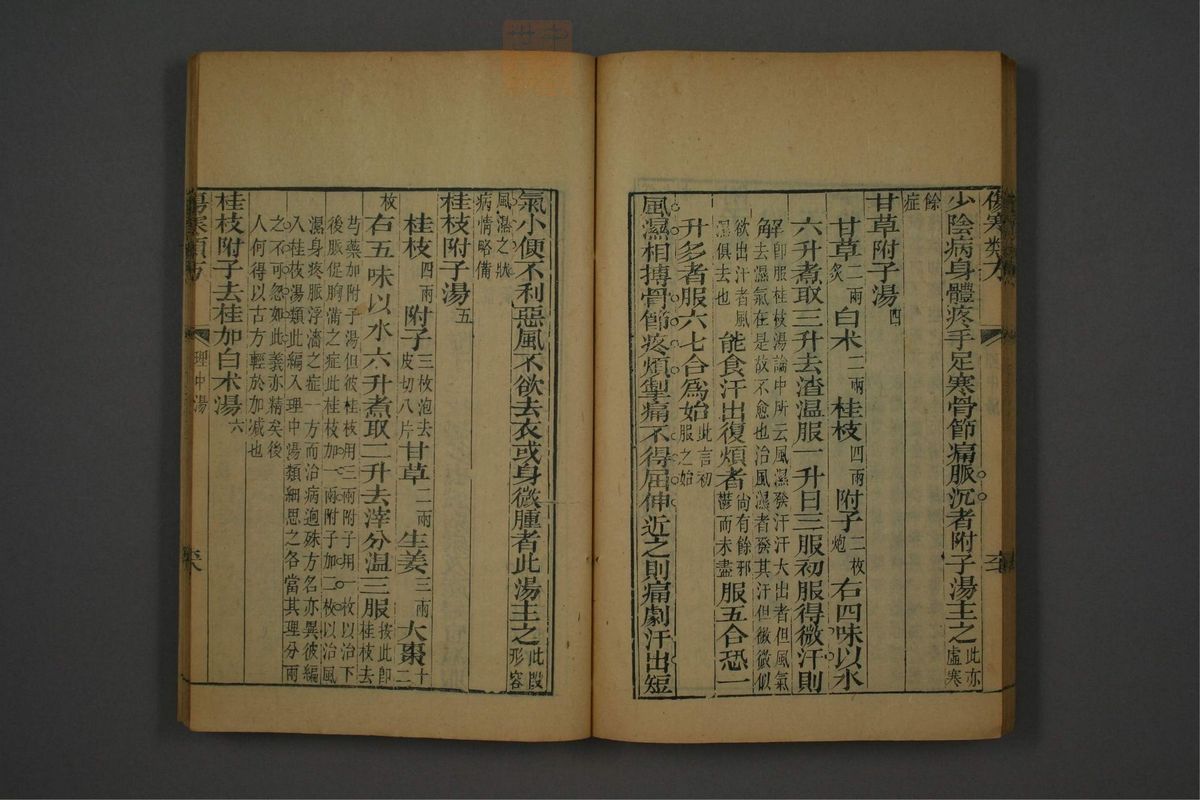 傷寒類方
少陰病身體疼手足寒骨節痛脈沉者附子湯主之此亦虛寒
餘症
甘草附子湯四
甘草炙二兩白术二兩桂枝四兩附子二枚炮右四味以水
六升煮取三升去渣温服一升日三服初服得微汗則
解卽服桂枝湯論中所云風濕發汗汗大出者但風氣去濕氣在是故不愈也治風濕者發其汗但微微似
欲出汗者風濕俱去也能食汗出復煩者尚有餘邪鬱而未盡服五合恐一
升多者服六七合爲始此言初服之始
風濕相搏骨節疼煩掣痛不得屈伸近之則痛劇汗出短
氣小便不利惡風不欲去衣或身微腫者此湯主之此段形容
風濕之狀病情略備
桂枝附子湯五
桂枝四兩附子三枚泡去皮切八片甘草二兩生姜三兩大棗十二
枚右五味以水六升煮取二升去滓分温三服按此卽桂枝去
芍藥加附子湯但彼桂枝用三兩附子用一枚以治下後脈促胸滿之症此桂枝加一兩附子加二枚以治風
濕身疼脈浮濇之症一方而治病逈殊方名亦異彼編入桂枝湯類此編入理中湯類細思之各當其理分兩
之不可忽如此義亦精矣後人何得以古方輕於加减也
桂枝附子去桂加白术湯六
傷寒類方
理中湯